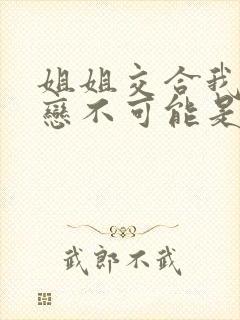 姐姐交合我
戀不可能是
武郎不武